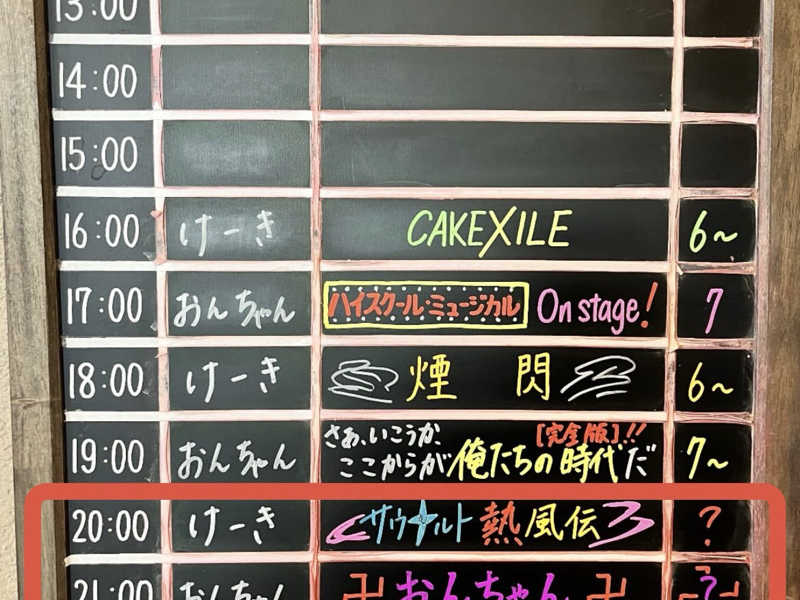 13:00
14:00
15:00
16:00 けーき CAKEXILE 6~
17:00 おんちゃん ハイスクール・ミュージカル On stage! 7
18:00 けーき 煙 閃 6~
19:00 おんちゃん さあ、いこうか [完全版]!! ここからが俺たちの時代だ 7~
20:00 けーき サウナルト 熱風伝 ?
21:00 おんちゃん 卍 おんちゃん 卍 ?